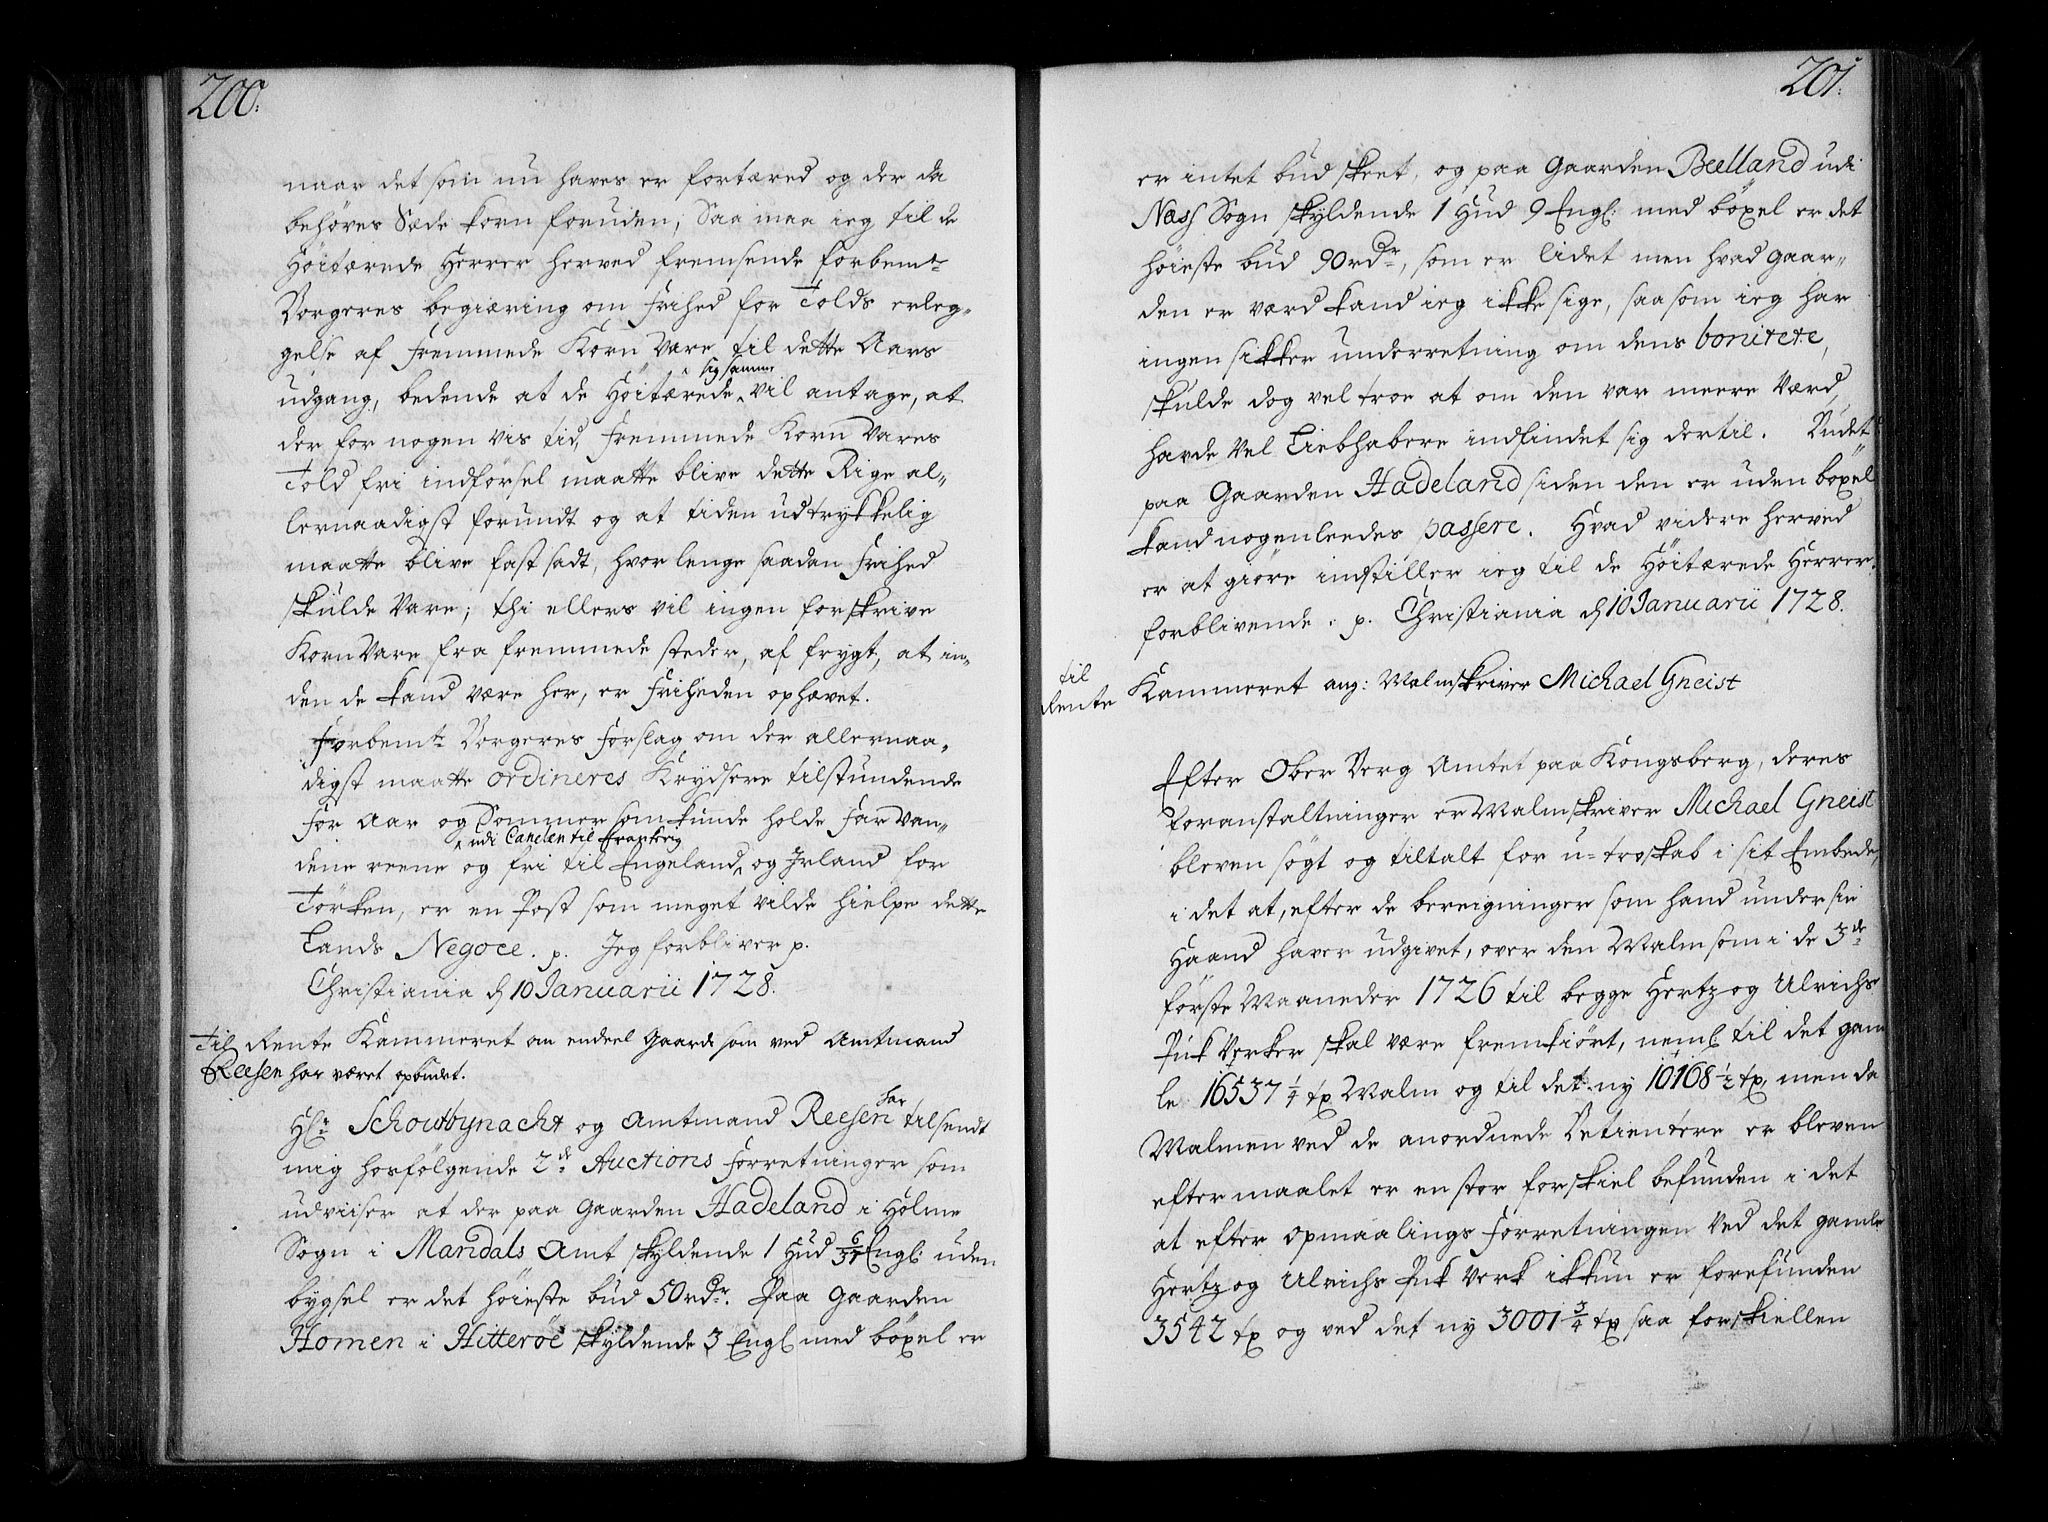 200.
naar det som nu haves er fortæred og der da
behöves Sæde korn foruden, Saa maa ieg til de
Höitærede Herrer herved fremsende forbemte
Borgeres begiæring om frihed for Tolds erleg-
gelse af fremmede Korn Vare til dette Aars
udgang, bedende at de Höitærede sig samme vil antage, at
der for nogen vis tid, fremmede Korn Vares
Told fri indförsel maatte blive dette Rige al-
lernaadigst forundt og at tiden udtrykkelig
maatte blive fast sadt, hvor lenge saadan frihed
skulde Vare; thi ellers vil ingen forskrive
Korn Vare fra fremmede steder, af frygt, at in-
den de kand være her, er friheden ophævet.
Forbemte Borgeres forslag om der allernaa-
digst maatte ordineres Krydsere tilstundende
For Aar og Sommer som kunde holde Far Van-
dene reene og fri til Engeland udi Canelen til Frankrig og Irland for
Törken, er en Post som meget vilde hielpe dette
Lands Negoce. p. Jeg forbliver p.
Christiania d 10 Januarii 1728.
Til Rente Kammeret om endeel Gaarde som ved Amtmand
Reesen har været opbudet.
Hr Schoutbynacht og Amtmand Reesen har tilsendt
mig hosfölgende 2de Auctions Forretninger som
udviiser at der paa Gaarden Hadeland i Holme
Sogn i Mandals Amt skyldende 1 Hud Engl: uden
bygsel er det höieste bud 50 rdr. Paa Gaarden
Homen i Hitteröe skyldende 3 Engl med böxel er
201.
er intet bud skeet, og paa Gaarden Beelland udi
Næss Sogn skyldende 1 Hud 9 Engl: med böxel er det
höieste bud 90 rdr, som er lidet men hvad Gaar-
den er værd kand ieg ikke sige, saa som ieg har
ingen sikker underretning om dens bonitete,
skulde dog vel troe at om den var meere Værd,
havde Vel Liebhabere indfindet sig dertil. Budet
paa Gaarden Hadeland siden den er uden böxel
kand nogenleedes passere. Hvad videre herved
er at giöre indstiller ieg til de Höitærede Herrer.
forblivende. p. Christiania d 10 Januarii 1728.
til
Rente Kammeret ang: Malmskriver Michael Gneist
Efter Ober Berg Amtet paa Kongsberg, deres
foranstaltninger er Malmskriver Michael Gneist
bleven sögt og tiltalt for u-troskab i sit Embede,
i det at, efter de bereigninger som hand under sin
Haand haver udgivet, over den Malm som i de 3de
förste Maaneder 1726 til begge Hertzog Ulrichs
Puk Verker skal være fremkiört, neml til det gam
le 16537 1/4 tr Malm og til det ny 10168 1/2 tr, men da
Malmen ved de anordnede Betientere er bleven
eftermaalet er en stor forskiel befunden i det
at efter opmaalings Forretningen Ved det gamle
Hertzog Ulrichs Puk Verk ikkun er forefunden
3542 tr og ved det ny 3001 3/4 tr saa forskiellen